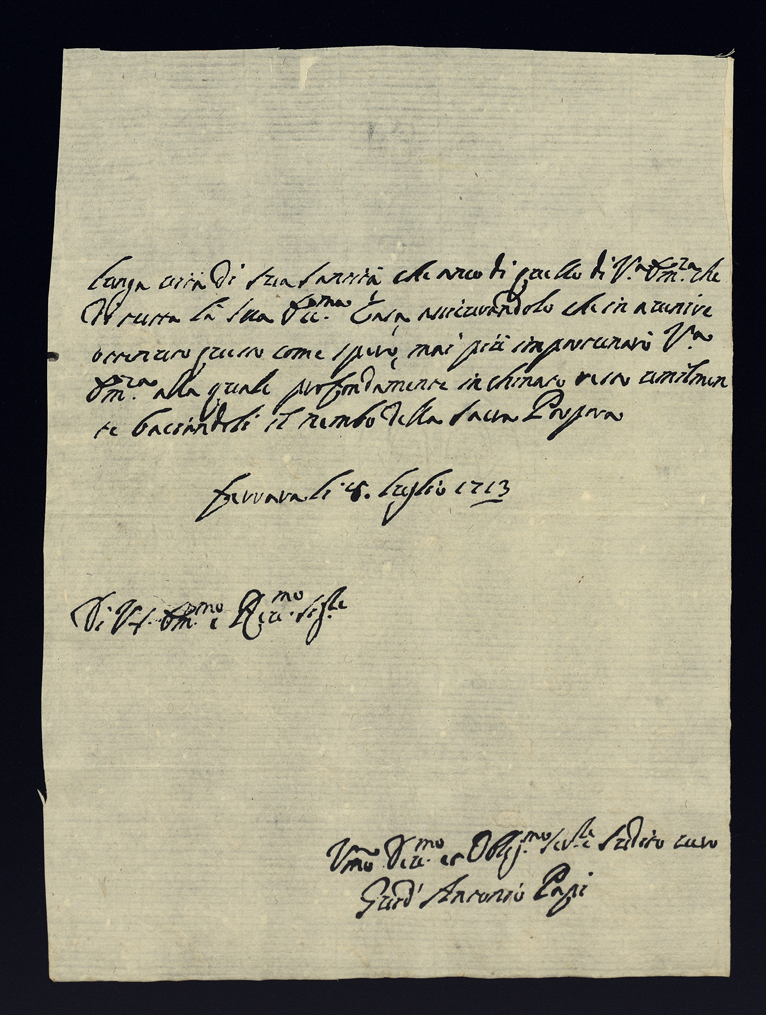 lunga vita di sua Santità che anco di quello di V.ª Em.za che
di tutta la sua Ecc.ma Casa assicurandolo che in avenire
ottenuto questo come spero, mai più importunarò V.ª
Em.za alla quale profondamente inchinato resto umilmen
te baciandoli il lembo della Sacra Porpora
Ferrara li 8. luglio 1713
Di V.ª Em.mo e Re.mo Sig.le
Um̃o De.mo et Obblig.mo Ser.le e Sudito vero
Giud.º Antonio Papi